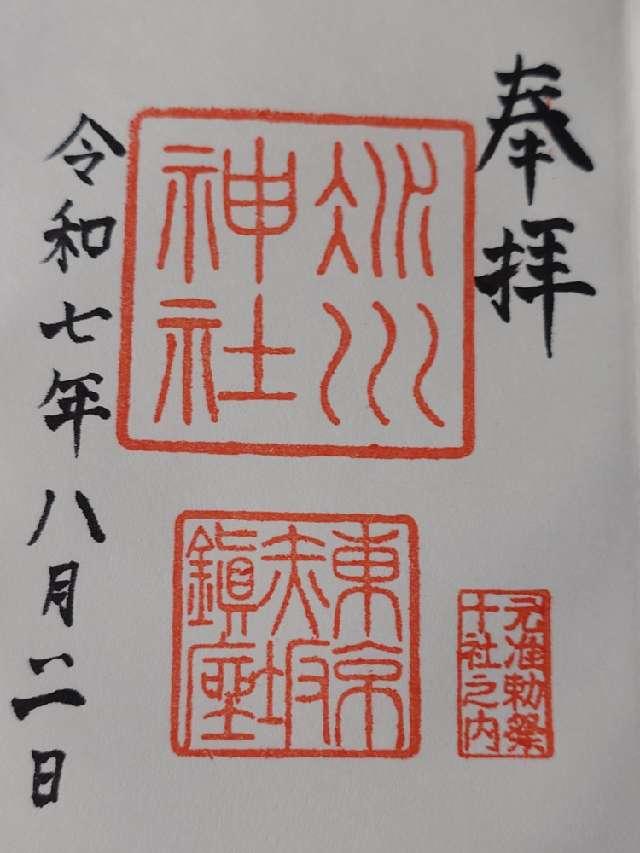 奉拝
氷川
神社
東京
赤坂
鎮座
元准勅祭
十社之内
令和七年八月二日